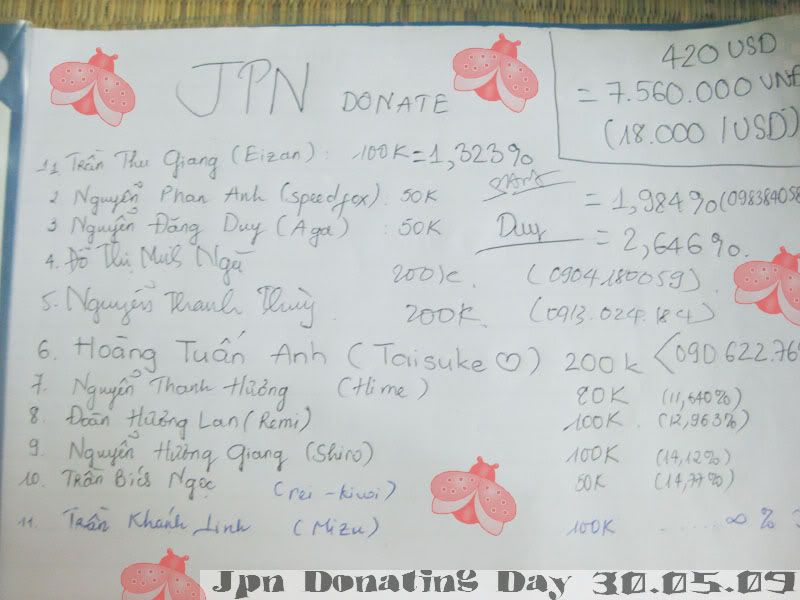 JPN DONATE
420 USD
= 7.560.000 VNĐ
(18.000 /USD)
1. Trần Thu Giang (Eizan) : 100K = 1,323%
2 Nguyễn Phan Anh (speedfox) : 50K = 1,984% (098384058
3 Nguyễn Đăng Duy (Aga) : 50K Duy = 2,646%.
4. Đỗ Thị Minh Ngà 200K. (0904180059)
5. Nguyễn Thanh Thuỳ 200K. (0913.024.184)
6. Hoàng Tuấn Anh (Taisuke ♡) 200k (090.622.769
7. Nguyễn Thanh Hương (Hime) 80K (11,640%)
8. Đoàn Hương Lan (Remi) 100K. (12,963%)
9. Nguyễn Hương Giang (Shiro) 100K (14,12%)
10. Trần Bích Ngọc (rei-kiwi) 50K (14,77%)
11. Trần Khánh Linh (Mizu) 100K ...... ∞ %
Jpn Donating Day 30.05.09